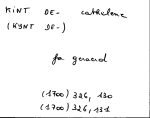 KINT DE- cathelene
(KYNT DE-)
fa geraerd
(1700) 326, 130
(1700) 326, 131